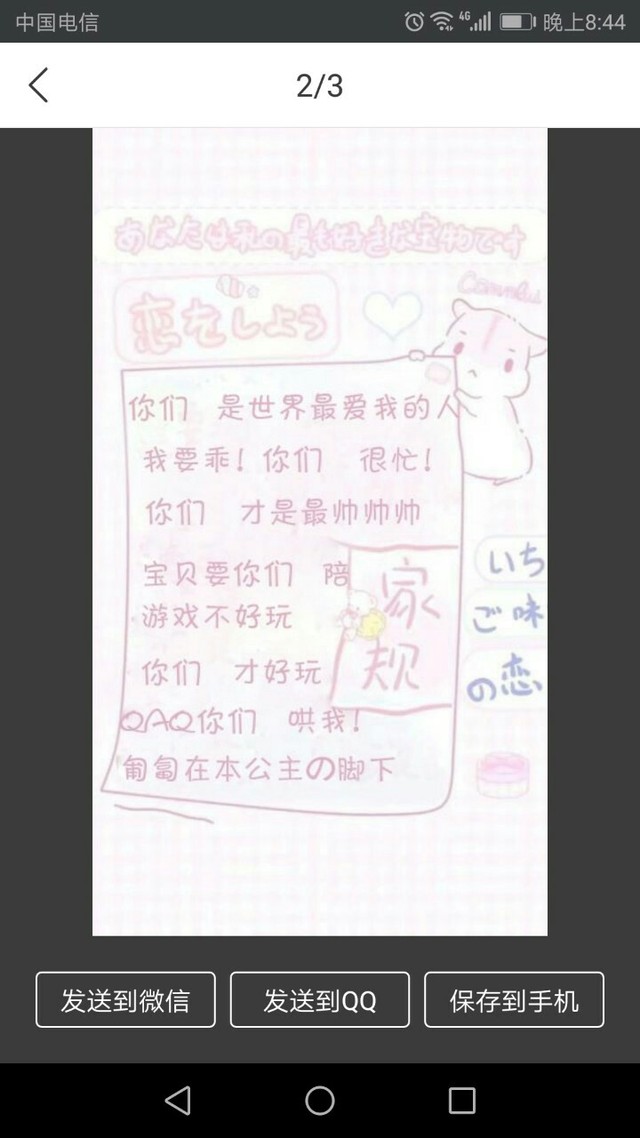 中国电信 4G 晚上8:44
2/3
あなたは私の最も好きな宝物です
恋をしよう
你们 是世界最爱我的人
我要乖！你们 很忙！
你们 才是最帅帅帅
宝贝要你们 陪
游戏不好玩
你们 才好玩
QAQ你们 哄我！
匍匐在本公主の脚下
家
规
いち
ご味
の恋
发送到微信 发送到QQ 保存到手机